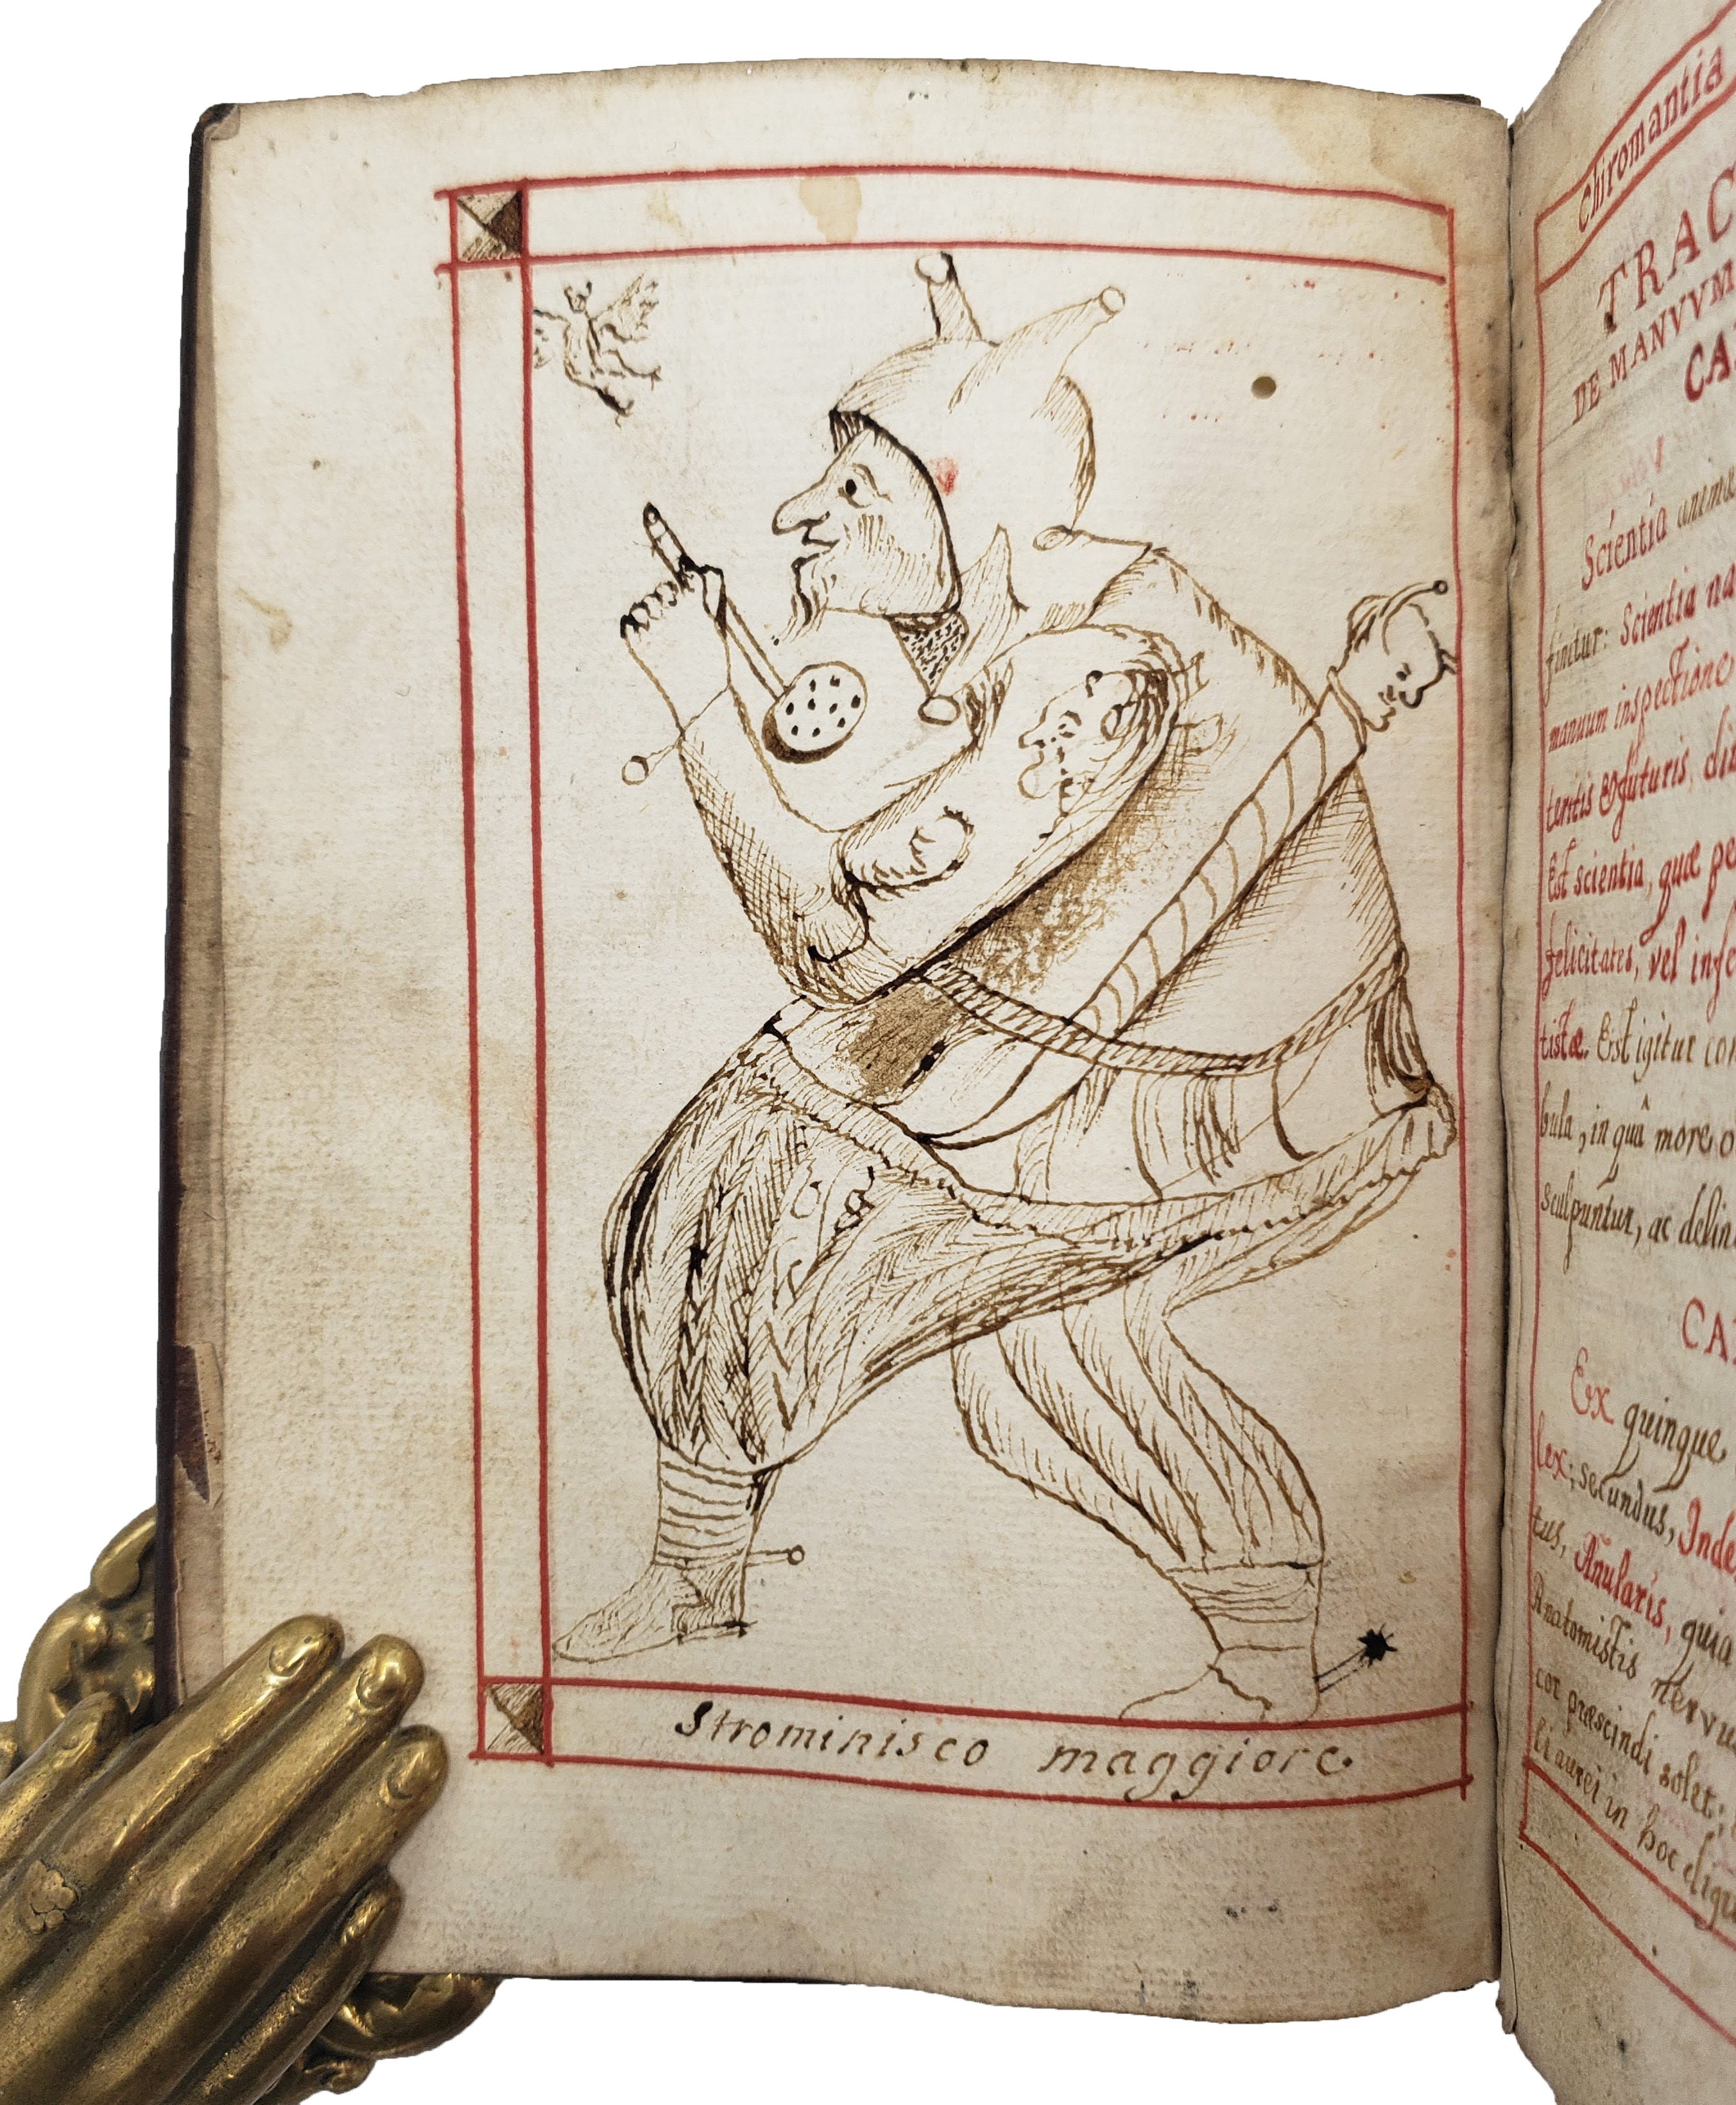 Strominisco maggiore.
Chiromantia
TRAC
DE MANVVM
CA
Scientia
finitur: Scientia na
manuum inspectione
teritis & futuris, di
Est scientia, quæ pe
felicitates, vel infe
tistæ. Est igitur con
bula, in quâ more o
sculpuntur, ac delin
CA
Ex quinque
lex; secundus, Inde
tus, Anularis, quia
Anatomistis nervu
cor præscindi solet;
li aurei in hoc digit